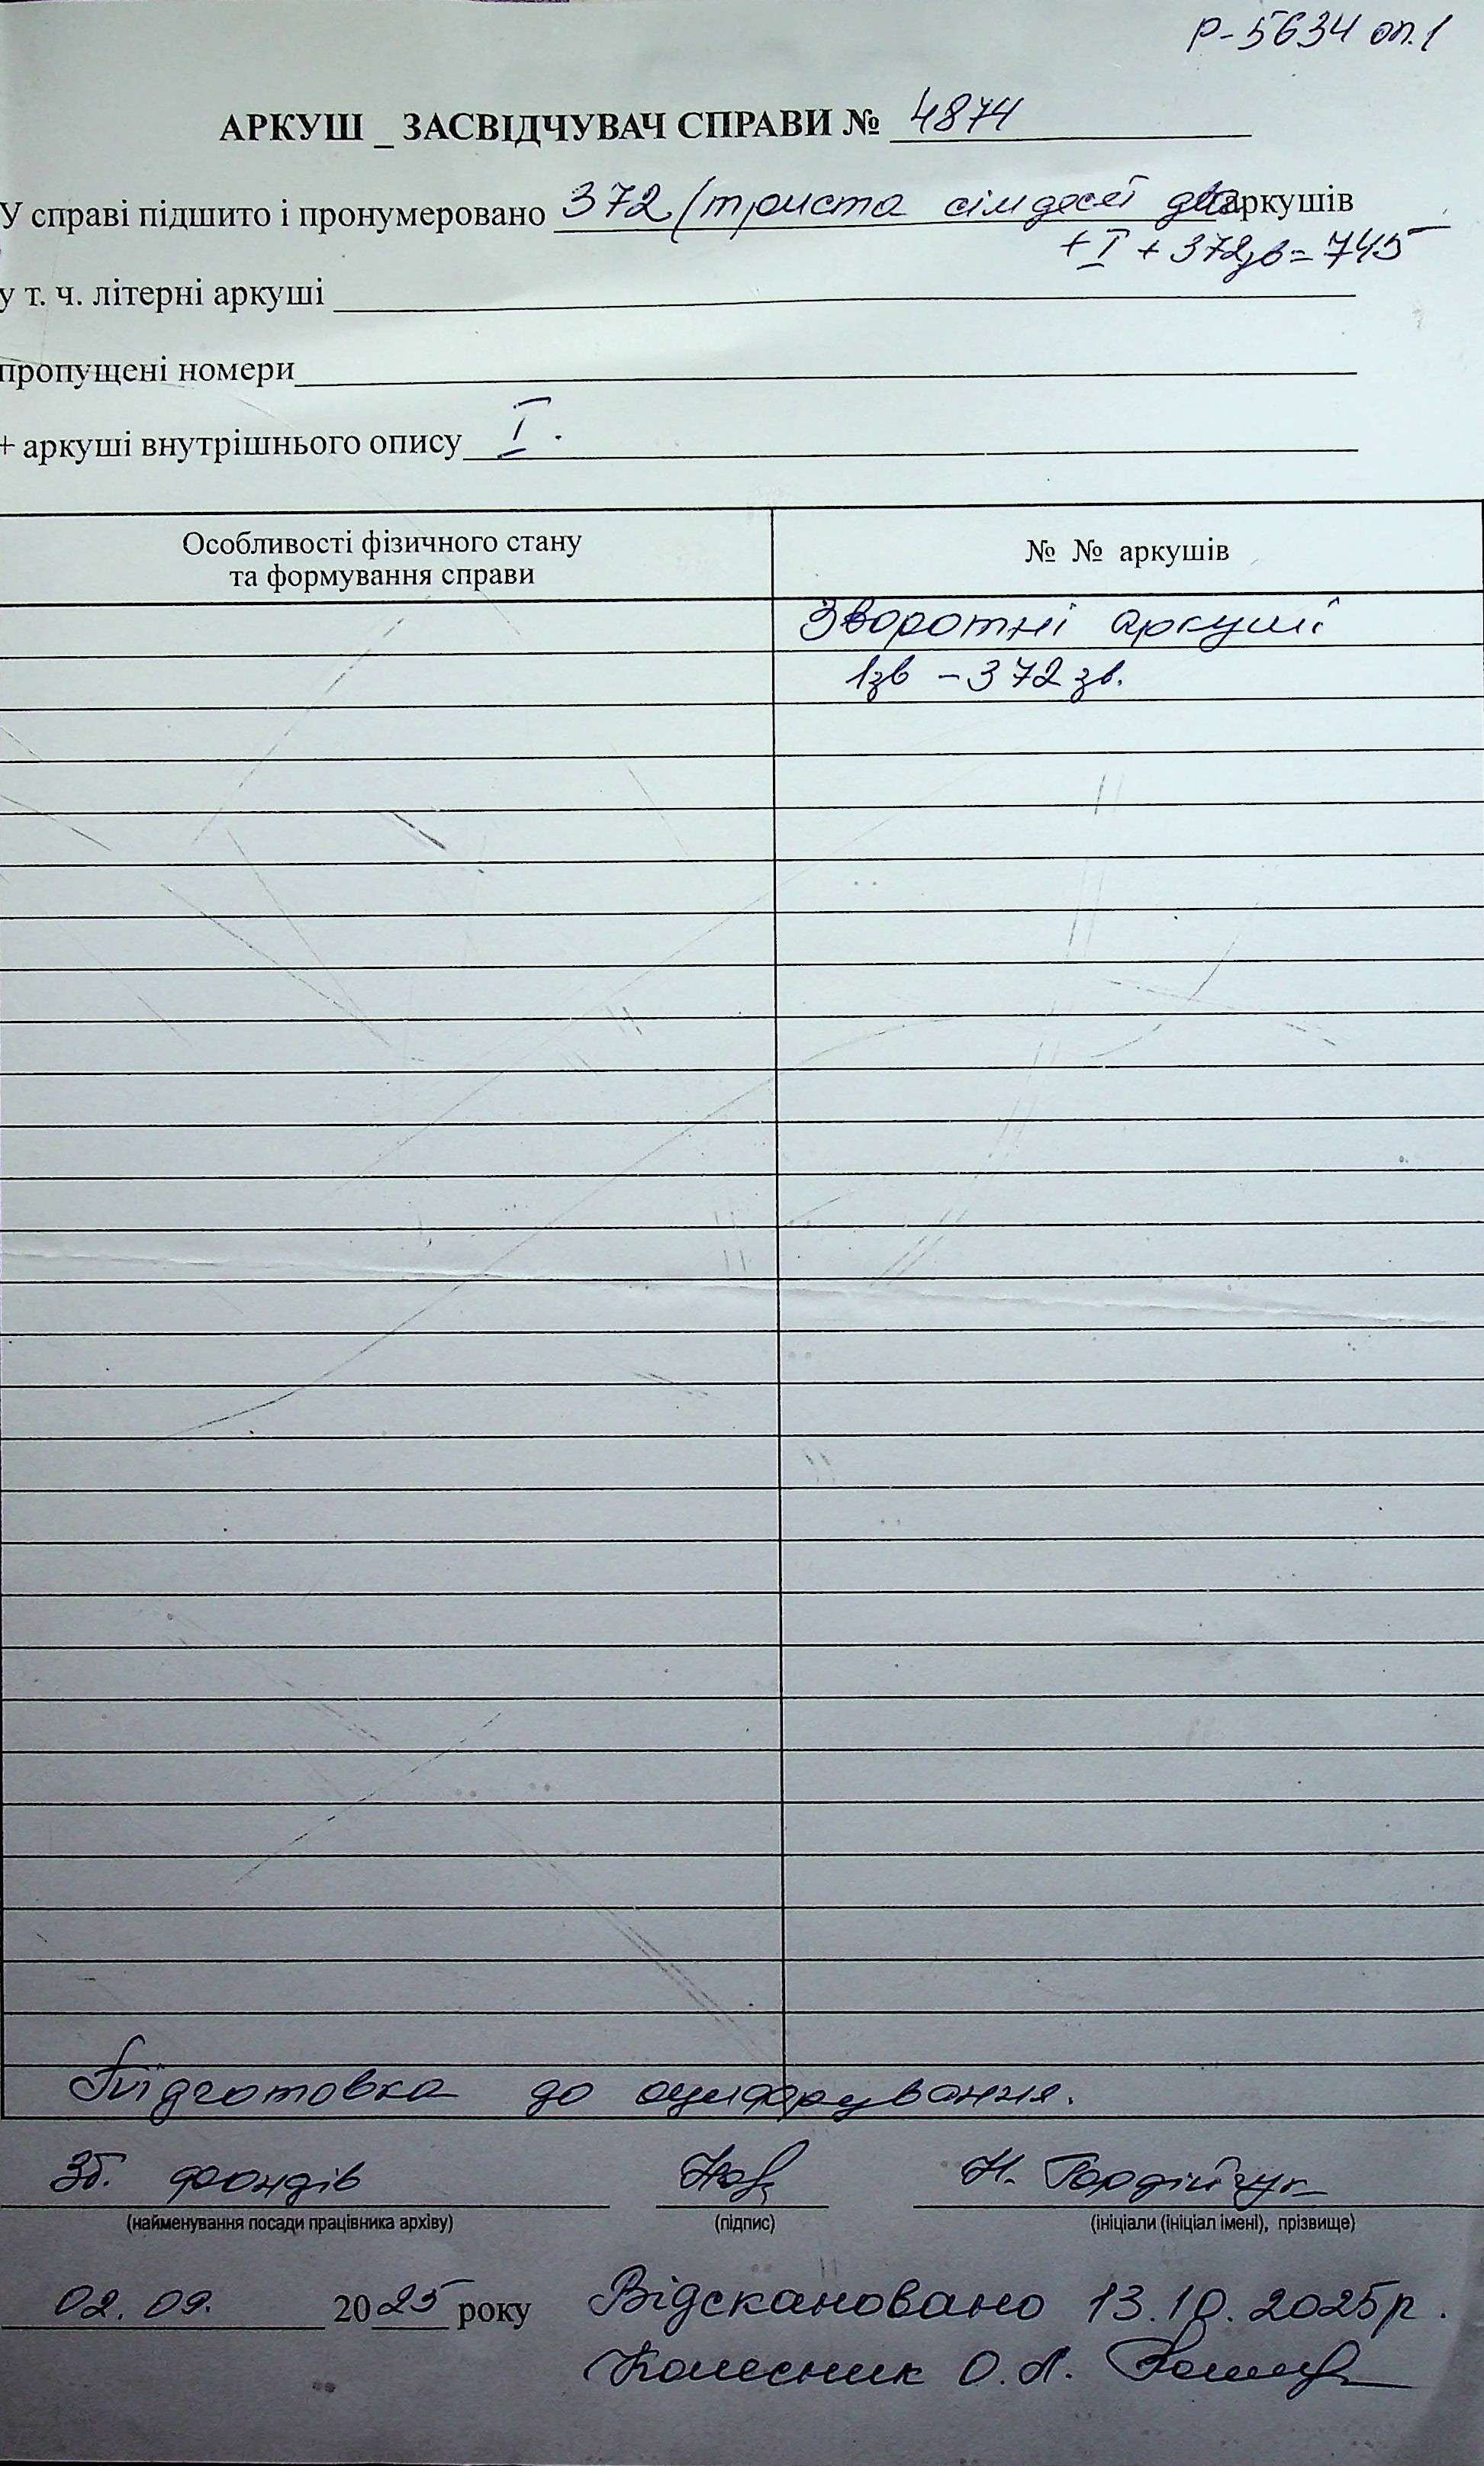 Р-5634 оп.1
АРКУШ _ ЗАСВІДЧУВАЧ СПРАВИ № 4874
У справі підшито і пронумеровано 372 (триста сімдесят два аркушів
+ I + 372зв = 745
у т. ч. літерні аркуші
пропущені номери
+ аркуші внутрішнього опису I.
Особливості фізичного стану
та формування справи
№ № аркушів
Зворотні аркуші
1зв – 372 зв.
Підготовка до оцифрування.
Зб. фондів
Н. Гордійчук
(найменування посади працівника архіву) (підпис) (ініціали (ініціал імені), прізвище)
02. 09. 2025 року Відскановано 13.10.2025р.
Колесник О. Л.